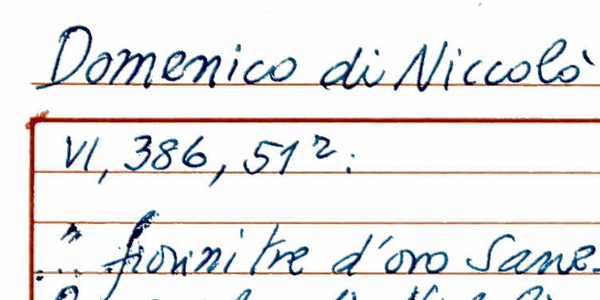 Domenico di Niccolò
VI, 386, 51r:
".. fiorini tre d'oro Sane-